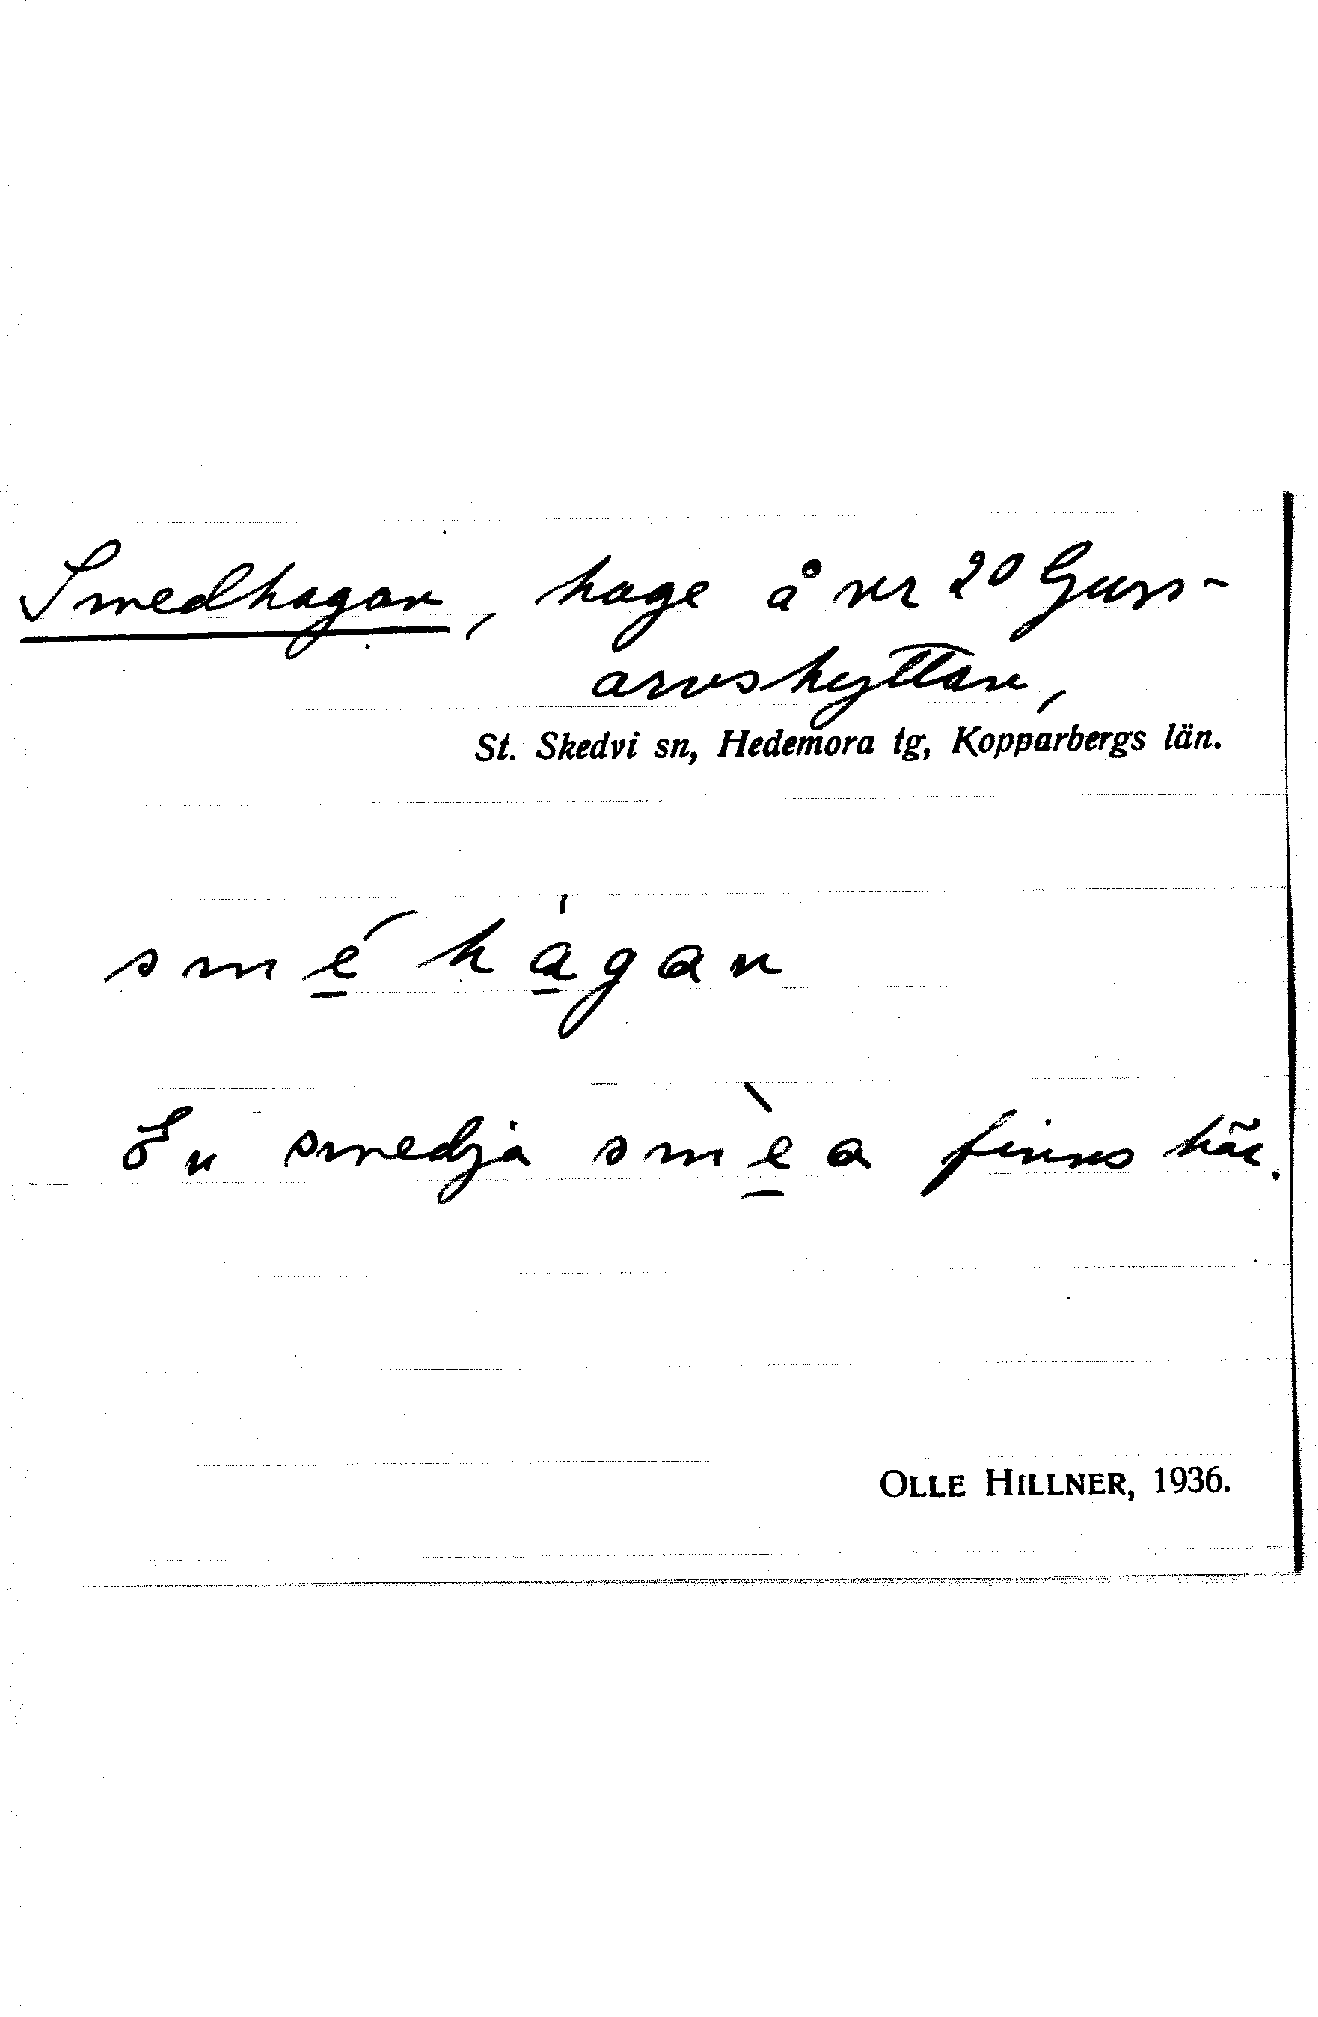 Smedhagan, hage å nr 20 Guss-
arvshyttan,
St. Skedvi sn, Hedemora tg, Kopparbergs län.
smé̱ hà̱gan
En smedja smè̱a finns här.
OLLE HILLNER, 1936.